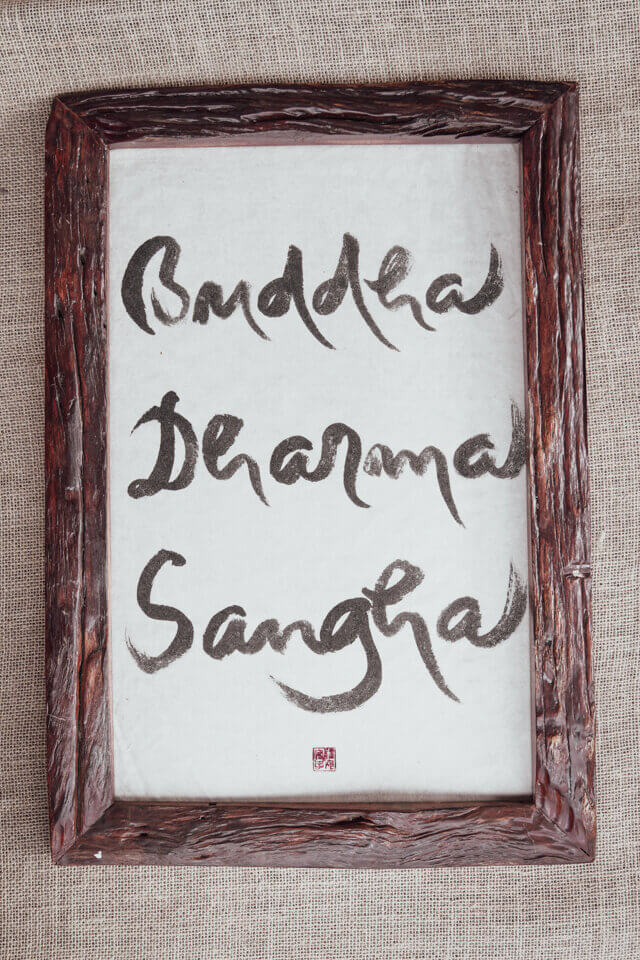 Buddha
Dharma
Sangha